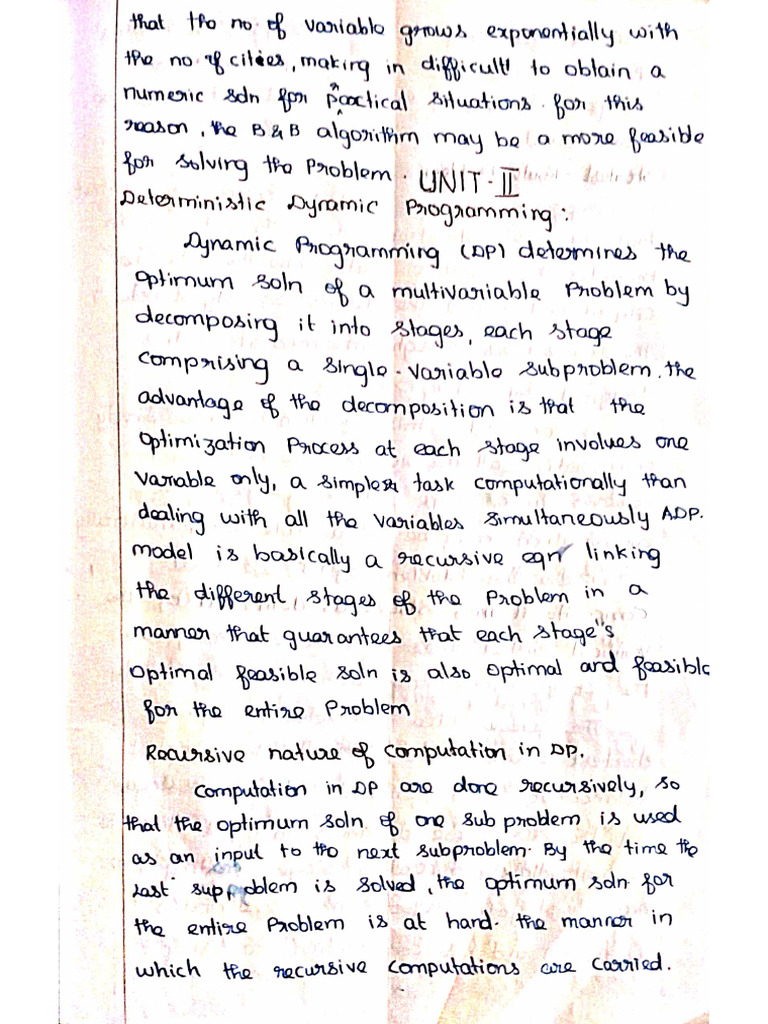 that the no of variable grows exponentially with
the no of cities, making in difficult to obtain a
numeric soln for practical situations. for this
reason, the B & B algorithm may be a more feasible
for solving the problem. UNIT-II
Deterministic Dynamic Programming:
Dynamic Programming (DP) determines the
optimum soln of a multivariable problem by
decomposing it into stages, each stage
comprising a single-variable subproblem. the
advantage of the decomposition is that the
optimization process at each stage involves one
variable only, a simpler task computationally than
dealing with all the variables simultaneously ADP.
model is basically a recursive eqn linking
the different, stages of the problem in a
manner that guarantees that each stage"s
optimal feasible soln is also optimal and feasible
for the entire problem
Recursive nature of computation in DP.
computation in DP are done recursively, so
that the optimum soln of one sub problem is used
as an input to the next subproblem. By the time the
last supproblem is solved, the optimum soln for
the entire problem is at hand. the manner in
which the recursive computations are carried.